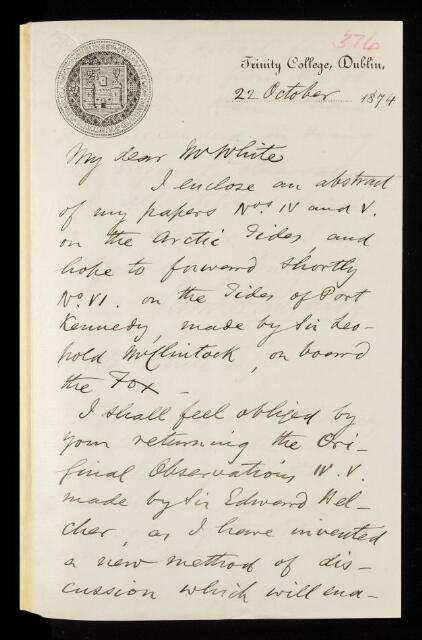 376
Trinity College, Dublin,
22 October 1874
My dear Mr White
I enclose an abstract
of my papers Nos. IV and V.
on the Arctic Tides, and
hope to forward shortly
No. VI. on the Tides of Port
Kennedy, made by Sir Leo-
pold McClintock, on board
the Fox.
I shall feel obliged by
your returning the Ori-
ginal Observations IV. V.
made by Sir Edward Bel-
cher, as I have invented
a new method of dis-
cussion which will ena-